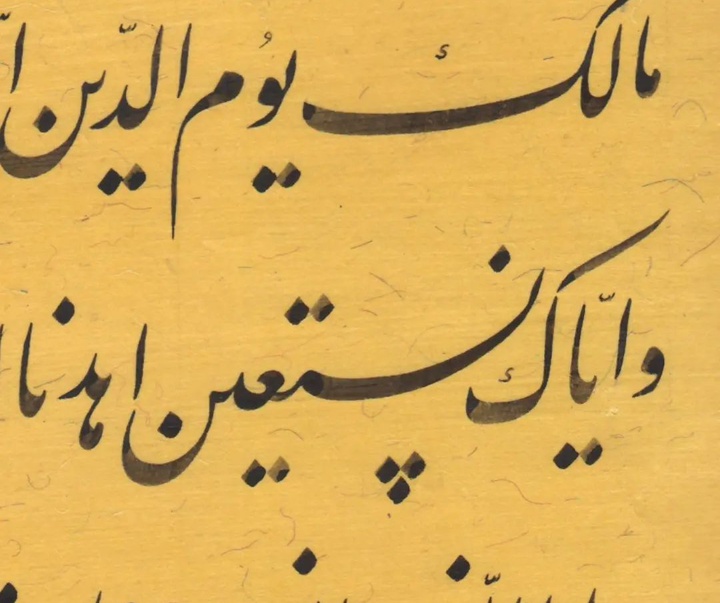 مالک یوم الدّین
وایّاک نستعین اهدنا